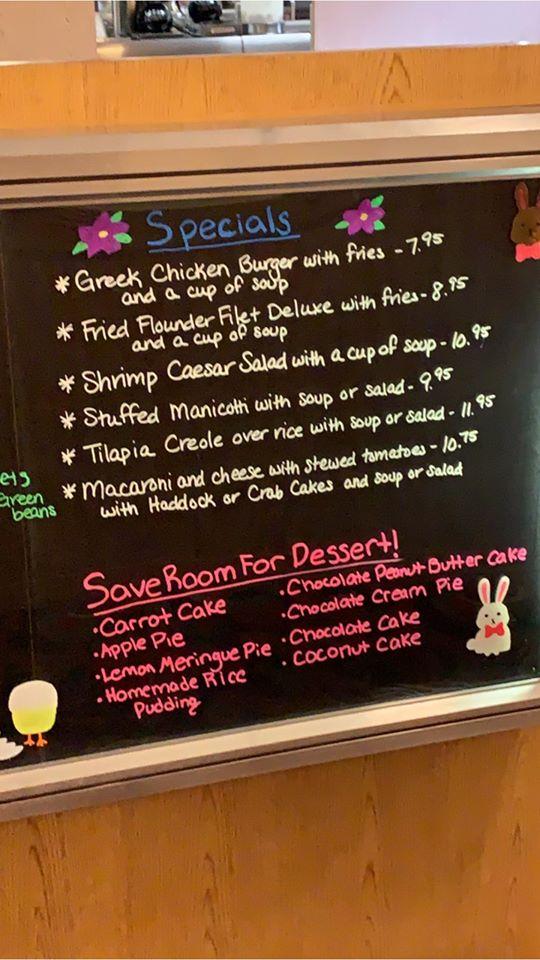 Specials
* Greek Chicken Burger with fries - 7.95
and a cup of soup
* Fried Flounder Filet Deluxe with fries - 8.95
and a cup of soup
* Shrimp Caesar Salad with a cup of soup - 10.95
* Stuffed Manicotti with soup or salad - 9.95
* Tilapia Creole over rice with soup or salad - 11.95
* Macaroni and cheese with stewed tomatoes - 10.75
with Haddock or Crab Cakes and soup or salad
Green
beans
Save Room For Dessert!
• Carrot Cake
• Apple Pie
• Lemon Meringue Pie
• Homemade Rice
Pudding
• Chocolate Peanut Butter Cake
• Chocolate Cream Pie
• Chocolate Cake
• Coconut Cake